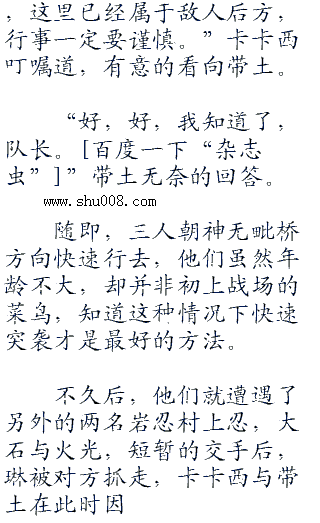 ，这里已经属于敌人后方，
行事一定要谨慎。”卡卡西
叮嘱道，有意的看向带土。
“好，好，我知道了，
队长。[百度一下“杂志
虫”]”带土无奈的回答。
www.shu008.com
随即，三人朝神无毗桥
方向快速行去，他们虽然年
龄不大，却并非初上战场的
菜鸟，知道这种情况下快速
突袭才是最好的方法。
不久后，他们就遭遇了
另外的两名岩忍村上忍，大
石与火光，短暂的交手后，
琳被对方抓走，卡卡西与带
土在此时因